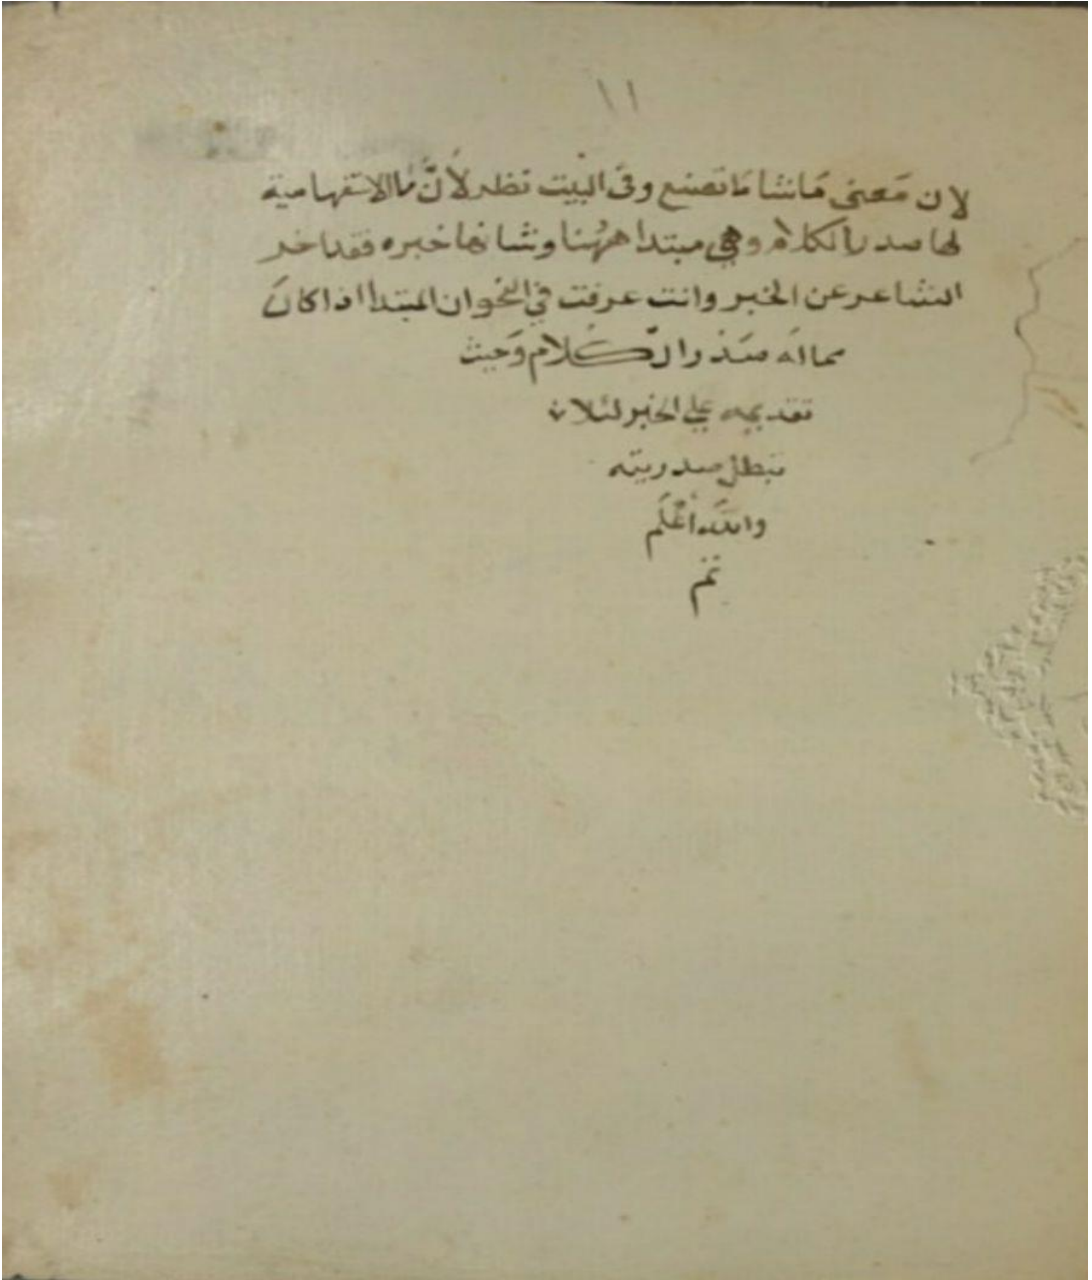 ١١
لان مَعنى مَانشا مَا تصنع وفى البيت نظر لأنَّ مَا الاستفهامية
لها صدر الكلام وهي مبتدا ههُنا وشانها خبره فقد اخر
الشاعر عن الخبر وانت عرفت في النحو ان المبتدا اذا كانَ
مما لَه صَدر الكُلام وَجبت
تقديمه علي الخبر لئلا
تبطل صدريته
والله أعْلَم
تم